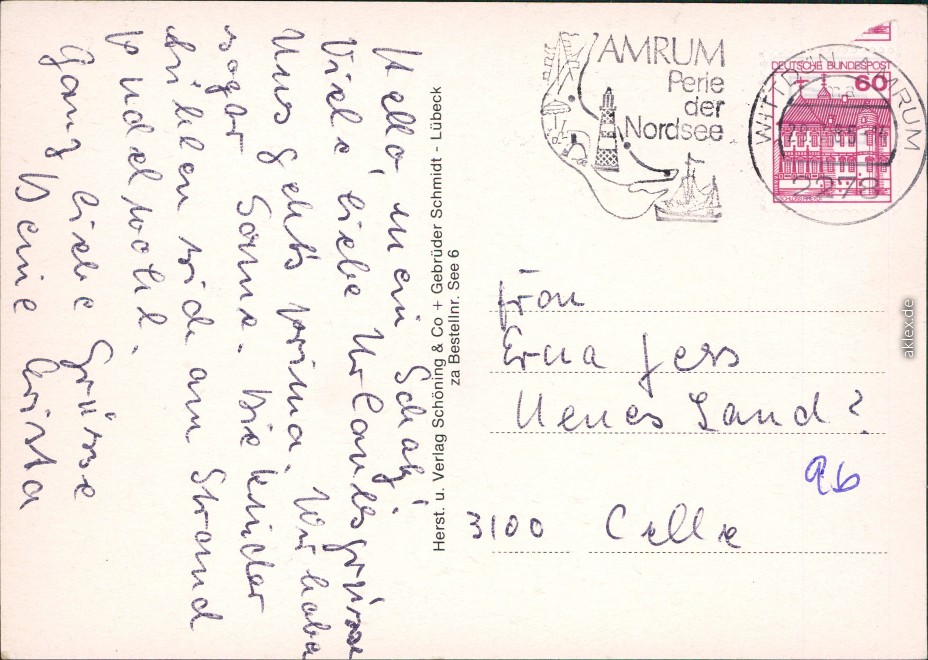 Hallo, mein Schatz!
Viele liebe Urlaubsgrüsse
Uns geht's prima. Wir haben
sogar Sonne. Die Kinder
fühlen sich am Strand
pudelwohl.
Ganz liebe Grüsse
Deine Christa
Herst. u. Verlag Schöning & Co + Gebrüder Schmidt - Lübeck
za Bestellnr. See 6
AMRUM
Perle
der
Nordsee
DEUTSCHE BUNDESPOST
60
WITTDÜN AMRUM
2278
Frau
Erna Jess
Neues Land ?
96
3100 Celle
aklex.de